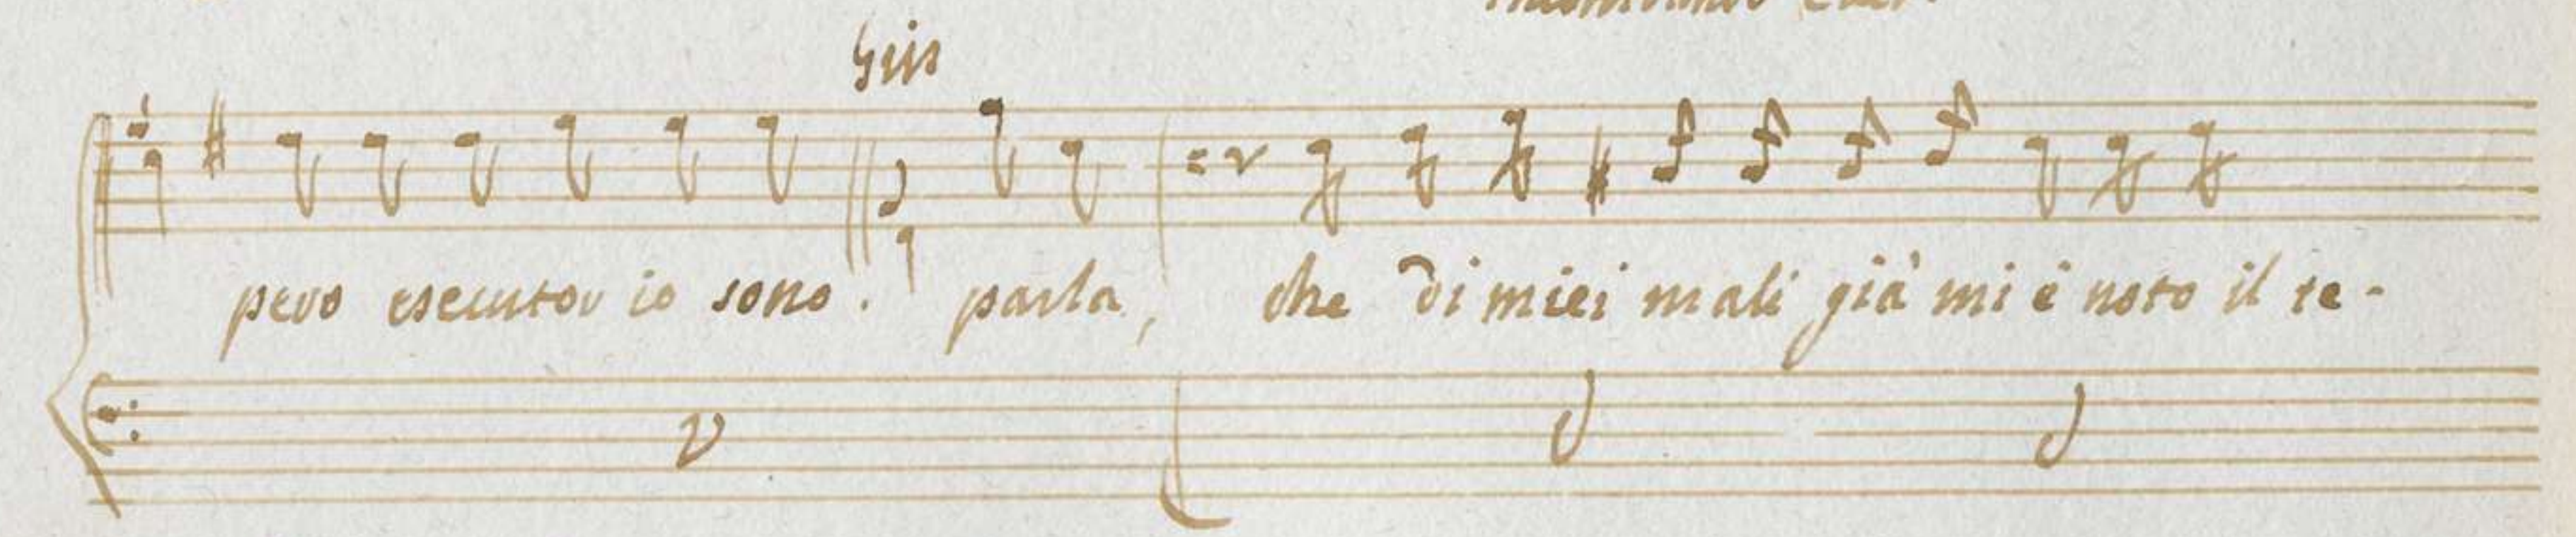 Gius
pero esecutor io sono. parla, che di miei mali già mi è noto il te-